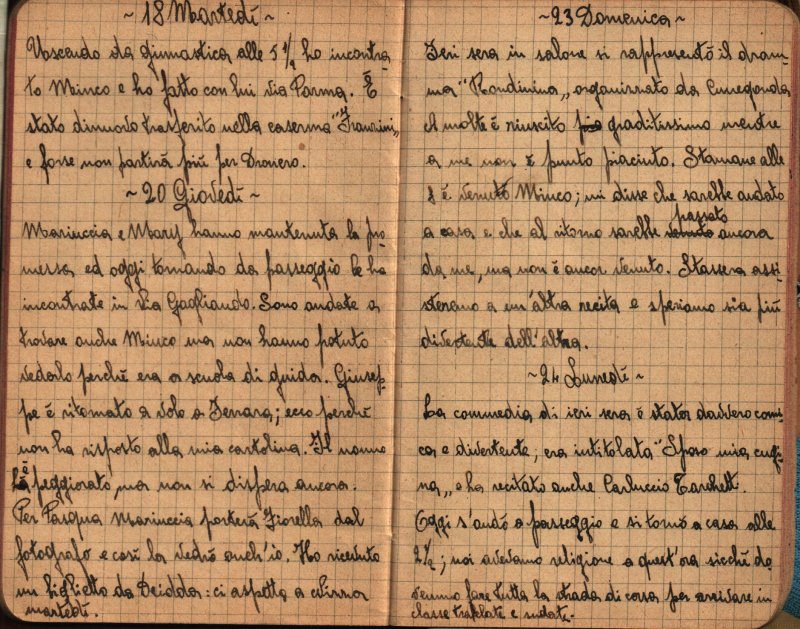 ~ 18 Martedí ~
Uscendo da ginnastica alle 5 1/2 ho incontra-
to Minco e ho fatto con lui via Parma. È
stato dinuovo trasferito nella caserma "Franzini"
e forse non partirà più per Dronero.
~ 20 Giovedí ~
Mariuccia e Mary hanno mantenuta la pro-
messa ed oggi tornando da passeggio le ho
incontrate in via Gagliaudo. Sono andate a
trovare anche Minco ma non hanno potuto
vederlo perchè era a scuola di guida. Giusep-
pe è ritornato a volo a Ferrara; ecco perchè
non ha risposto alla mia cartolina. Il nonno
è peggiorato, ma non si dispera ancora.
Per Pasqua Mariuccia porterà Fiorella dal
fotografo e così la vedrò anch'io. Ho ricevuto
un biglietto da Deidda: ci aspetta a
martedí.
~ 23 Domenica ~
Ieri sera in salone si rappresentò il dram-
ma "Rondinina", organizzato da Cunegonda
A molte è riuscito graditissimo mentre
a me non è punto piaciuto. Stamane alle
8 è venuto Minco; mi disse che sarebbe andato
a casa e che al ritorno sarebbe venuto passato ancora
da me, ma non è ancor venuto. Stassera assi-
steremo a un'altra recita e speriamo sia più
divertente dell'altra.
~ 24 Lunedí ~
La commedia di ieri sera è stata davvero comi-
ca e divertente; era intitolata "Sposo mia cugi-
na", e ha recitato anche Carluccio Tarchetti.
Oggi s'andò a passeggio e si tornò a casa alle
2 1/2; noi avevamo religione a quest'ora sicchè do-
vemmo fare tutta la strada di corsa per arrivare in
classe trafelate e sudate.